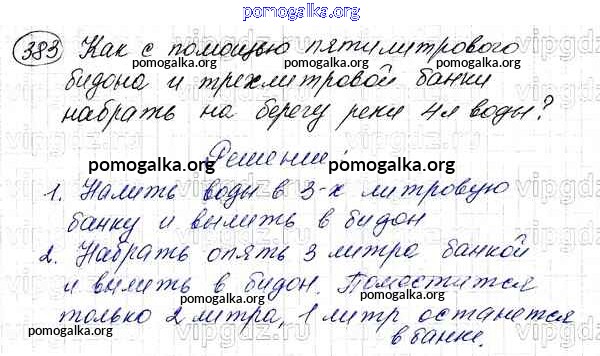 pomogalka.org
383 Как с помощью пятилитрового
бидона и трехлитровой банки
набрать на берегу реки 4л воды?
pomogalka.org pomogalka.org
Решение:
pomogalka.org
1. Налить воды в 3-х литровую
банку и вылить в бидон
pomogalka.org
2. Набрать опять 3 литра банкой
и вылить в бидон. Поместится
pomogalka.org pomogalka.org
только 2 литра, 1 литр останется
в банке.
pomogalka.org pomogalka.org